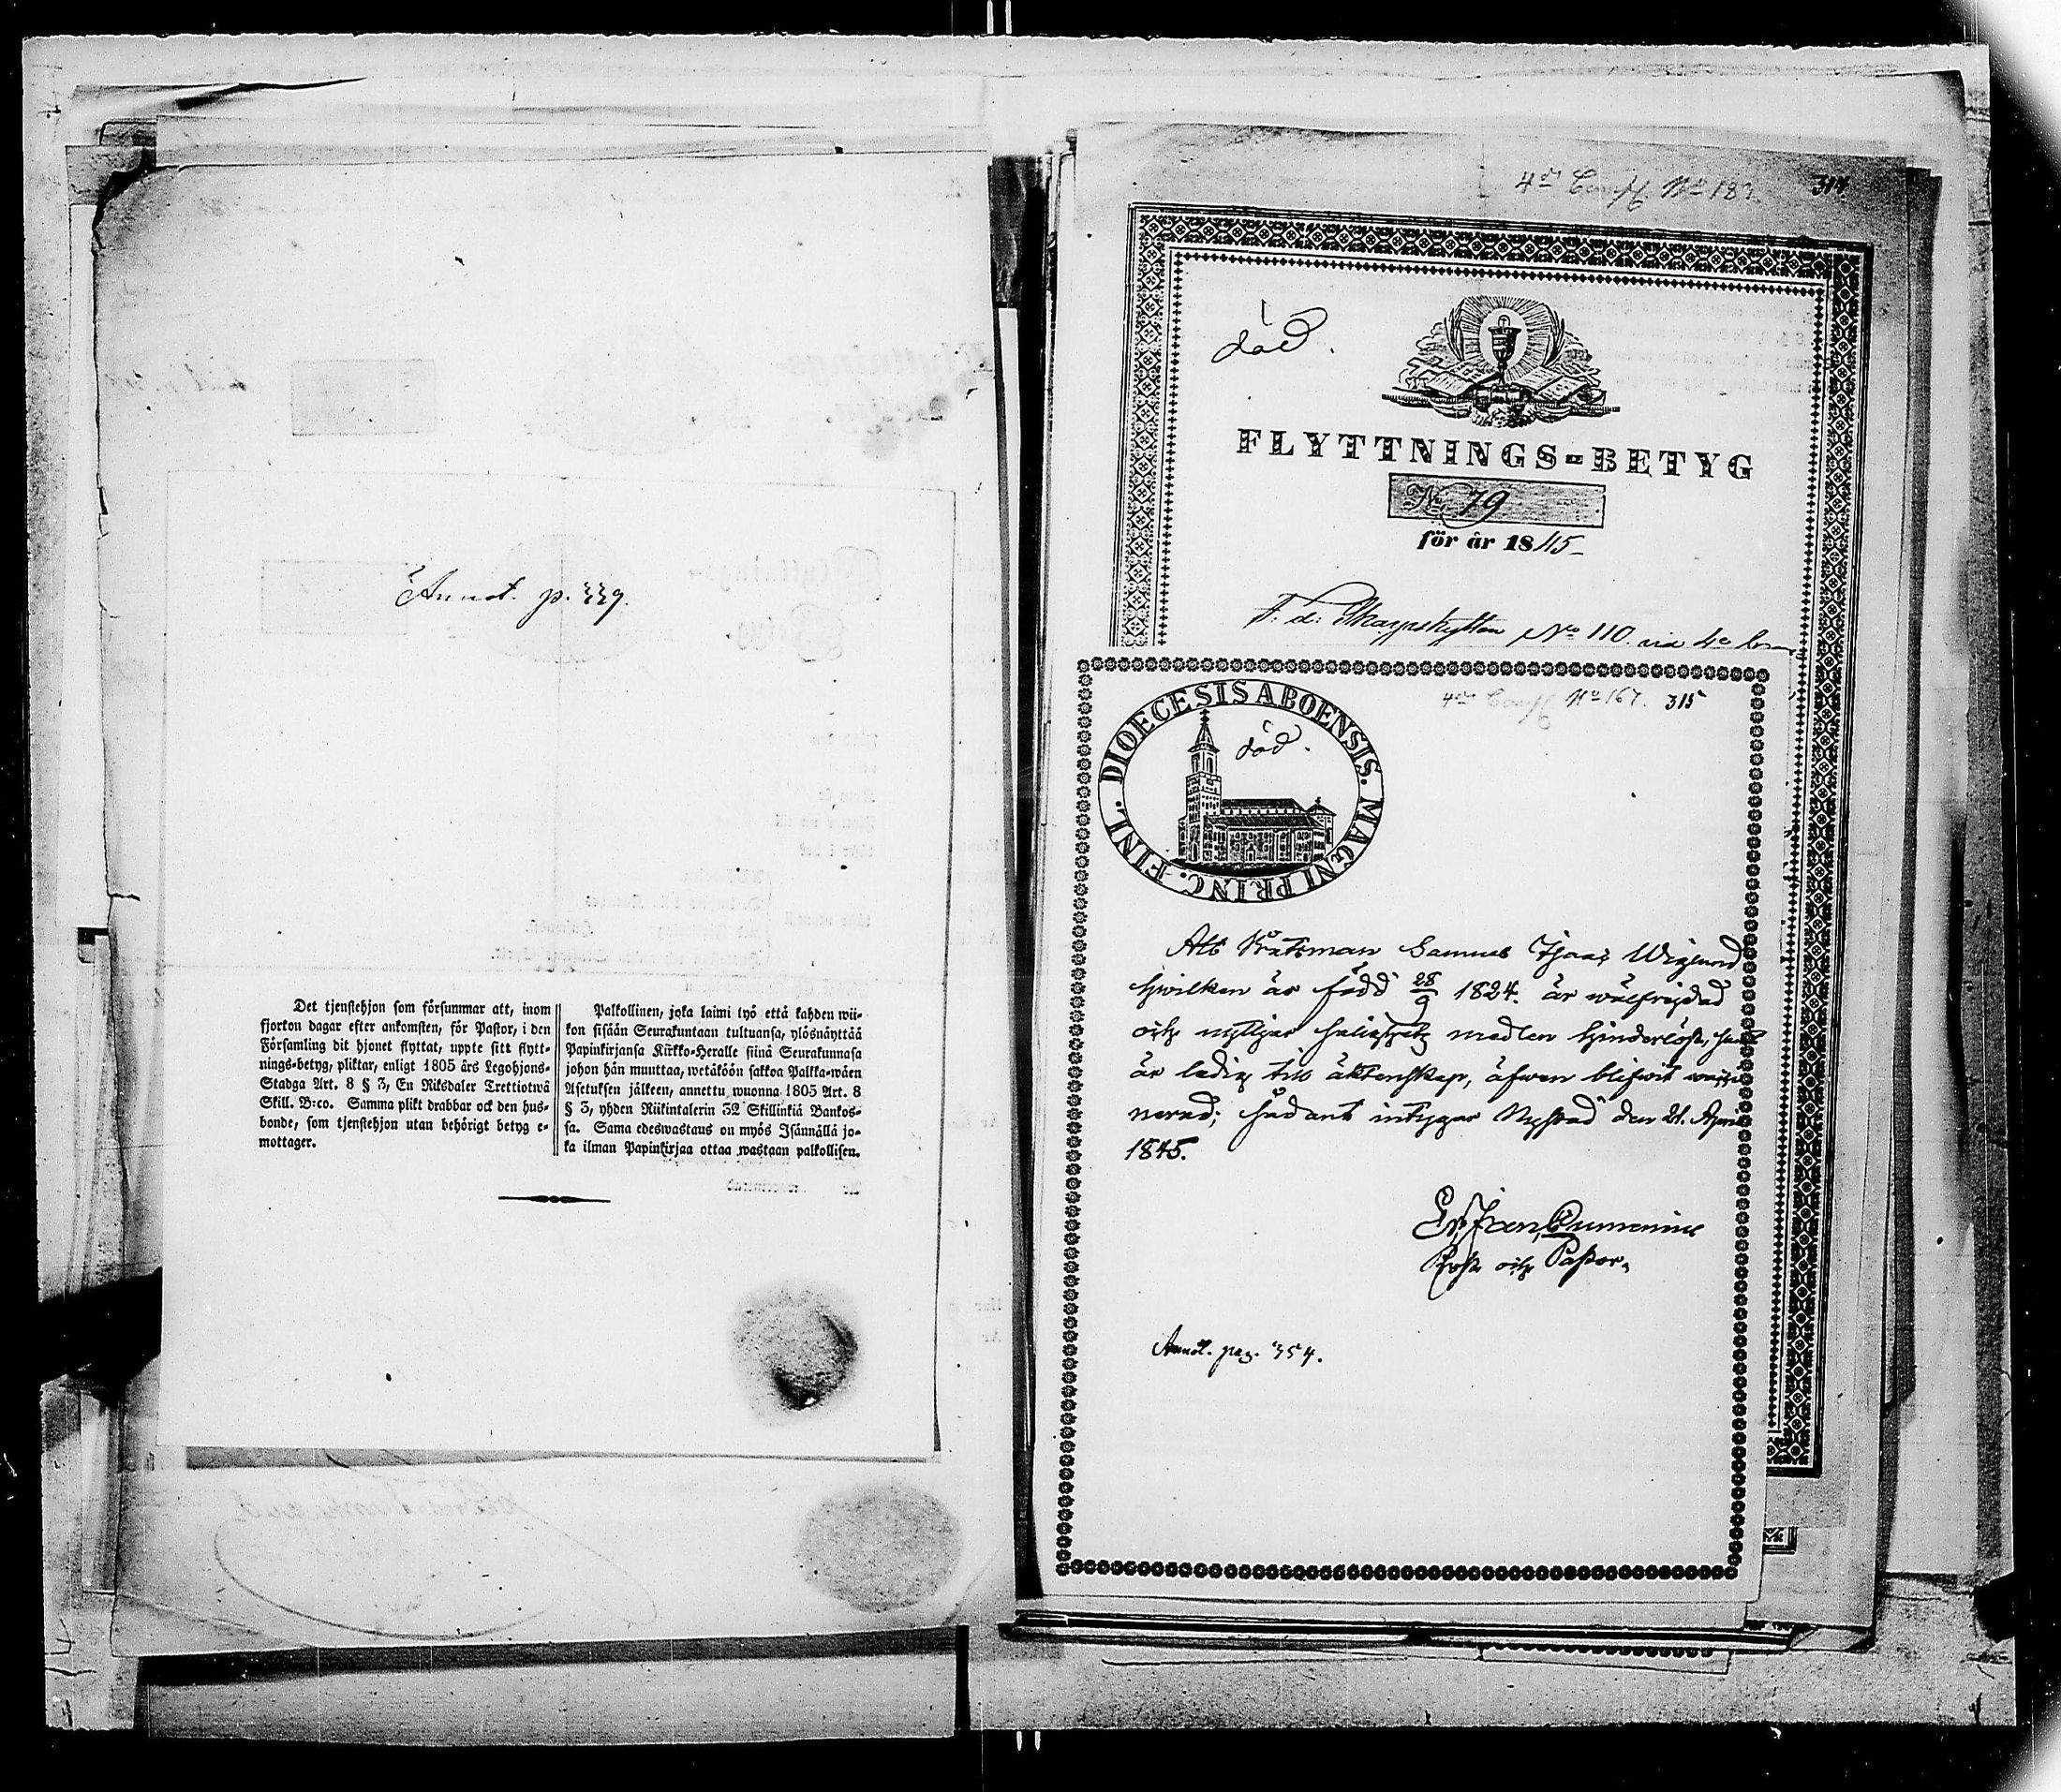 Annot. p. 339.
Det tjenstehjon som försummar att, inom
fjorton dagar efter ankomsten, för Pastor, i den
Församling dit hjonet flyttat, uppte sitt flytt-
nings-betyg, pliktar, enligt 1805 års Legohjons-
Stadga Art. 8 § 3, En Riksdaler Trettiotwå
Skill. B:co. Samma plikt drabbar ock den hus-
bonde, som tjenstehjon utan behörigt betyg e-
mottager.
Palkollinen, joka laimi lyö että kahden wii-
kon sisään Seurakuntaan tultuansa, ylösnäyttää
Papinkirjansa Kirkko-Heralle siinä Seurakunnasa
johon hän muuttaa, wetäköön sakkoa Palkka-wäen
Asetuksen jälkeen, annettu wuonna 1805 Art. 8
§ 3, yhden Riikintalerin 32 Skillinkiä Bankos-
sa. Sama edeswastaus on myös Isännällä jo-
ka ilman Papinkirjaa ottaa wastaan palkollisen.
4de Comp N:o 183. 314
död.
FLYTTNINGS-BETYG
N:o 79
för år 1845
F. d. Skarpskytten N:o 110 vid 4e
4de Comp N:o 167. 315
DIOECESIS ABOENSIS. MAGNI PRINC. FINL.
död.
Att Båtsman Samuel Wiglund
hwilken är född 28/9 1824. är wälfrejdad
och nyttjar medlen hinderlöst,
är ledig till äktenskap, äfwen blifwit
nerad; sådant intygar Nystad den 21. April
1845.
Prost och Pastor.
Annot. pag. 354.